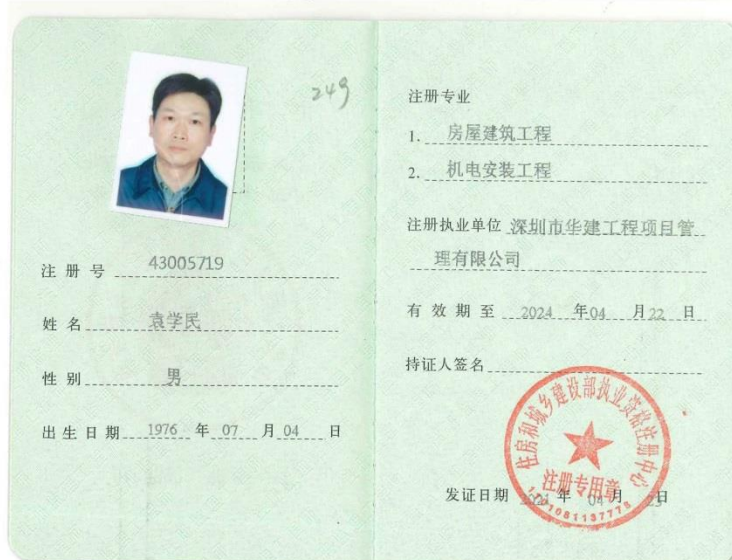 249
注 册 号 43005719
姓 名 袁学民
性 别 男
出 生 日 期 1976 年 07 月 04 日
注册专业
1. 房屋建筑工程
2. 机电安装工程
注册执业单位 深圳市华建工程项目管
理有限公司
有 效 期 至 2024 年 04 月 22 日
持证人签名
住房和城乡建设部执业资格注册中心
注册专用章
发证日期 2021 年 04 月 23 日